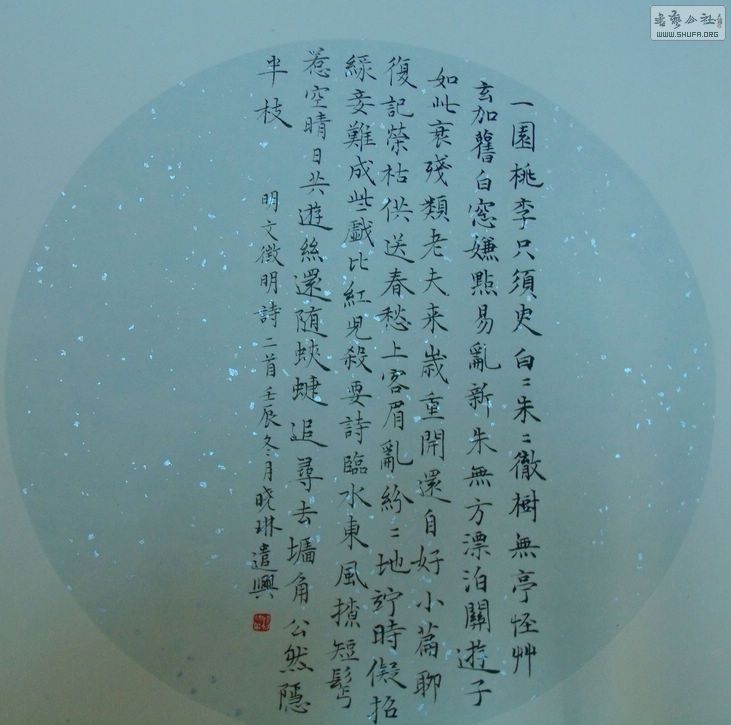 一園桃李只須臾白〻朱〻徹樹無亭怪艸
玄加舊白窓嫌點易亂新朱無方漂泊關遊子
如此衰殘類老夫来歲重開還自好小篇聊
復記榮枯供送春愁上客眉亂紛〻地竚時儗招
綠妾難成些戲比紅兒殺要詩臨水東風撩短鬢
惹空晴日共遊絲還随蛺蝶追尋去墻角公然隱
半枝
明文徵明詩二首壬辰冬月晓琳遣興
書藝公社
WWW.SHUFA.ORG